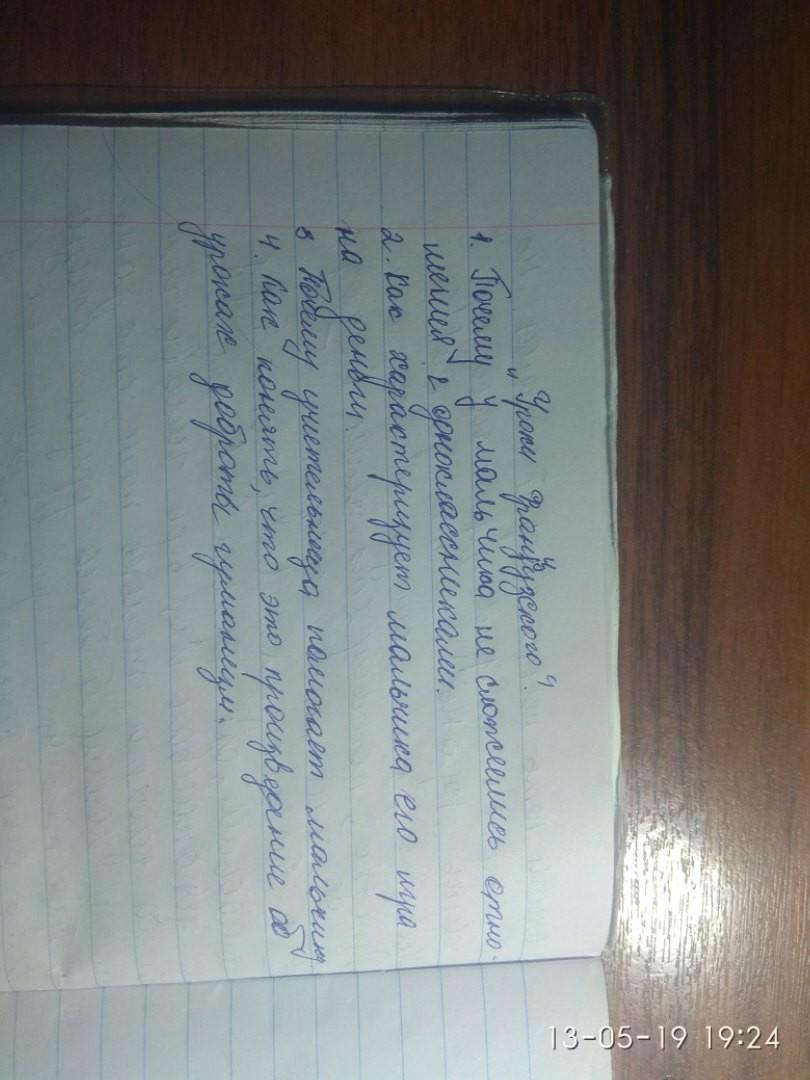 „Уроки французского“.
1. Почему у мальчика не сложились отно-
шения с одноклассниками.
2. Как характеризует мальчика его игра
на деньги.
3 Почему учительница помогает мальчику
4. Как понять, что это произведение об
уроках доброты гуманизм.
13-05-19 19:24